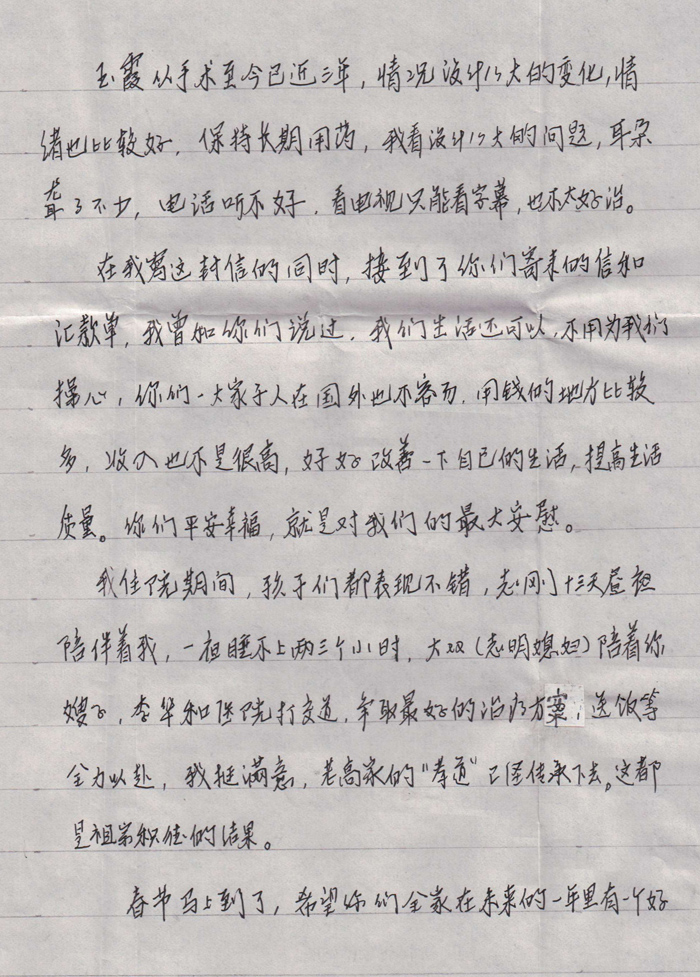 玉霞从手术至今已近三年，情况没什么大的变化，情
绪也比较好，保持长期用药，我看没什么大的问题，耳朵
聋了不少，电话听不好，看电视只能看字幕，也不太好治。
在我写这封信的同时，接到了你们寄来的信和
汇款单，我曾和你们说过，我们生活还可以，不用为我们
操心，你们一大家子人在国外也不容易，用钱的地方比较
多，收入也不是很高，好好改善一下自己的生活，提高生活
质量。你们平安幸福，就是对我们的最大安慰。
我住院期间，孩子们都表现不错，志刚十三天昼夜
陪伴着我，一夜睡不上两三个小时，大双（志明媳妇）陪着你
嫂子，李华和医院打交道，争取最好的治疗方案，送饭等
全力以赴，我挺满意，老高家的“孝道”已经传承下去。这都
是祖宗积德的结果。
春节马上到了，希望你们全家在未来的一年里有一个好